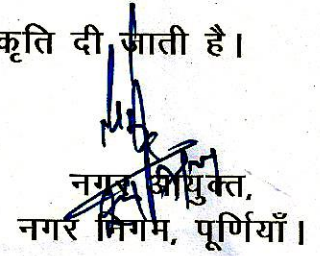 कृति दी जाती है।
नगर आयुक्त,
नगर निगम, पूर्णियाँ।